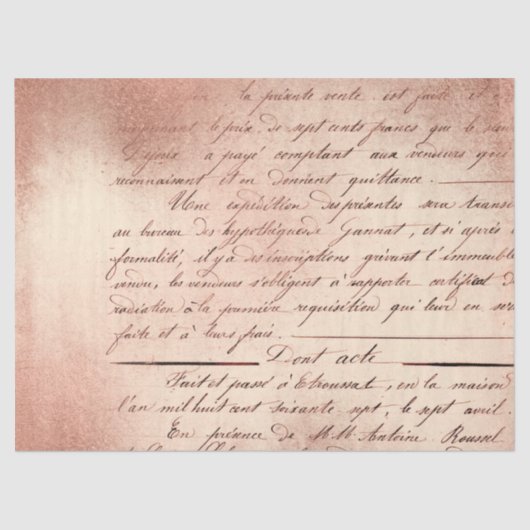 la présente vente est faite et
moyennant le prix de sept cents francs que le
Dejoux a payé comptant aux vendeurs qui
reconnaissent et en donnent quittance.
Une expédition des présentes sera trans
au bureau des hypothèques de Gannat, et si après
formalité, il y a des inscriptions grévant l'immeuble
vendu, les vendeurs s'obligent à rapporter certificat d
radiation à la première requisition qui leur en se
faite et à leurs frais.
Dont acte
Fait et passé à Etroussat, en la maison
l'an mil huit cent soixante sept, le sept avril.
En présence de M.M. Antoine Roussel